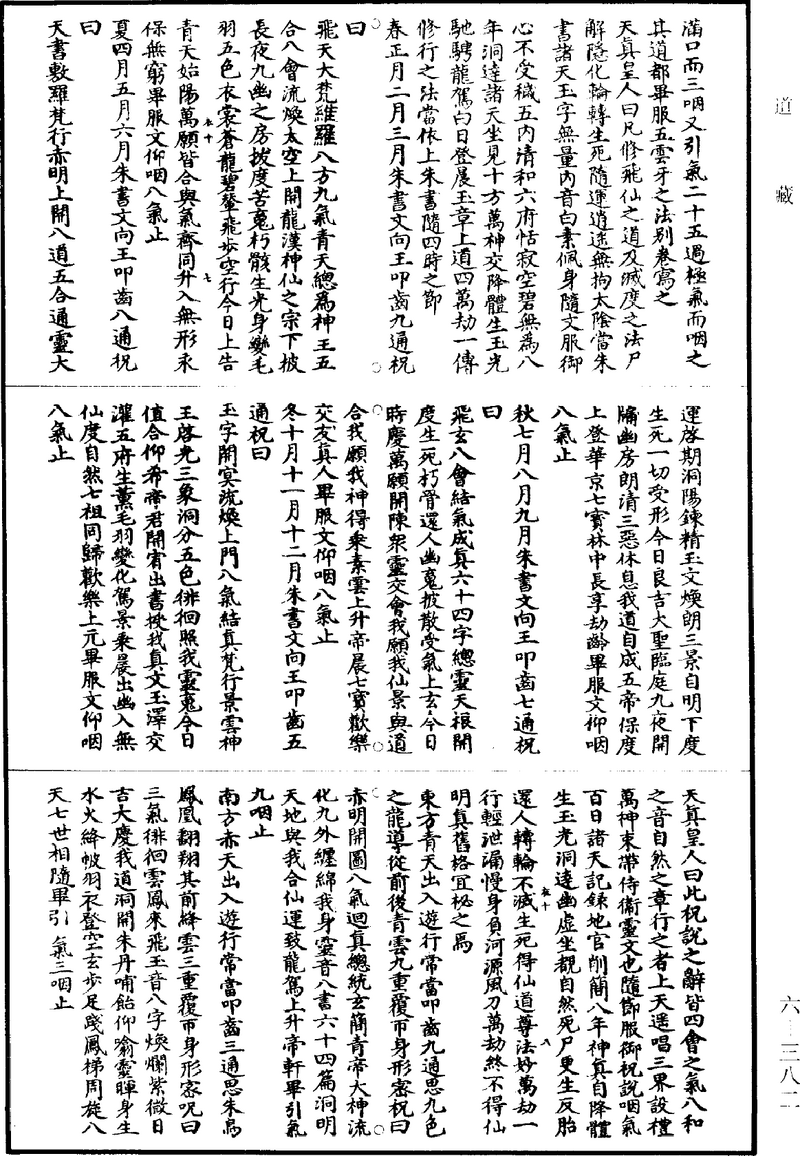 道藏
滿口而三咽又引氣二十五過極氣而咽之
其道都畢服五雲牙之法別卷寫之
天真皇人曰凡修飛仙之道及滅度之法尸
解隱化輪轉生死隨運逍遙無拘太陰當朱
書諸天玉字無量內音白素佩身隨文服御
心不受穢五內清和六府恬寂空碧無為八
年洞達諸天坐見十方萬神交降體生玉光
馳騁龍駕白日登晨玉章上道四萬劫一傳
修行之法當依上朱書隨四時之節
春正月二月三月朱書文向王叩齒九通祝
曰
飛天大梵維羅八方九氣青天總爲神王五
合八會流煥太空上開龍漢神仙之宗下披
長夜九幽之房拔度苦䰟朽骸生光身變毛
羽五色衣裳蒼龍碧輦飛步空行今日上告
青天始陽萬願皆合與氣齊同升入無形永
保無窮畢服文仰咽八氣止
夏四月五月六月朱書文向王叩齒八通祝
曰
天書敷羅梵行赤明上開八道五合通靈大
運啓期洞陽鍊精玉文煥朗三景自明下度
生死一切受形今日良吉大聖臨庭九夜開
牖幽房朗清三惡休息我道自成五帝保度
上登華京七寶林中長享劫齡畢服文仰咽
八氣止
秋七月八月九月朱書文向王叩齒七通祝
曰
飛玄八會結氣成真六十四字總靈天根開
度生死朽骨還人幽䰟披散受氣上玄今日
時慶萬願開陳衆靈交會我願我仙景與道
合我願我神得乘素雲上升帝晨七寶歡樂
交友真人畢服文仰咽八氣止
冬十月十一月十二月朱書文向王叩齒五
通祝曰
玉字開冥流煥上門八氣結真梵行景雲神
王啓光三象洞分五色徘徊照我靈䰟今日
值合仰希帝君開宥出書授我真文玉澤交
灌五府生薰毛羽變化駕景乘晨出幽入無
仙度自然七祖同歸歡樂上元畢服文仰咽
八氣止
天真皇人曰此祝說之辭皆四會之氣八和
之音自然之章行之者上天遥唱三界設禮
萬神束帶侍衛靈文也隨節服御祝說咽氣
百日諸天記錄地官削簡八年神真自降體
生玉光洞達幽虛坐覩自然死尸更生反胎
還人轉輪不滅生死得仙道尊法妙萬劫一
行輕泄漏慢身負河源風刀萬劫終不得仙
明真舊格宜秘之焉
東方青天出入遊行常當叩齒九通思九色
之龍導從前後青雲九重覆帀身形密祝曰
赤明開圖八氣迴真總統玄簡青帝大神流
化九外纏綿我身靈音八書六十四篇洞明
天地與我合仙運致龍駕上升帝軒畢引氣
九咽止
南方赤天出入遊行常當叩齒三通思朱鳥
鳳凰翻翔其前絳雲三重覆帀身形密呪曰
三氣徘徊雲鳳來飛玉音八字煥爛紫微日
吉大慶我道洞開朱丹哺飴仰飡靈暉身生
水火絳帔羽衣登空玄步足踐鳳梯周旋八
天七世相隨畢引氣三咽止
六—三八二